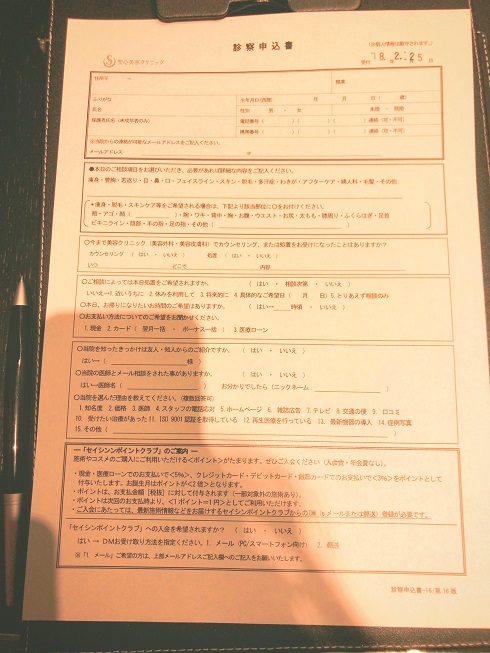 診察申込書
(※個人情報は厳守されます。)
聖心美容クリニック
受付 '18. 2. 25
年 月 日
住所〒 ー
職業:
ふりがな
生年月日(西暦) 年 月 日( 歳)
氏名
性別 男 ・ 女
未婚 ・ 既婚
保護者氏名(未成年者のみ)
電話番号( )( )( )連絡(可・不可)
携帯番号( )( )( )連絡(可・不可)
※当院からの連絡が可能なメールアドレスをご記入ください。
メールアドレス
●本日のご相談項目をお選びいただき、必要があれば詳細な内容をご記入ください。
痩身・豊胸・若返り・目・鼻・口・フェイスライン・スキン・脱毛・多汗症・わきが・アフターケア・婦人科・毛髪・その他
★痩身・脱毛・スキンケア等をご希望される場合は、下記より該当部位に○をお付けください。
顔・アゴ・首( )・腕・ワキ・背中・胸・お腹・ウエスト・お尻・太もも・膝周り・ふくらはぎ・足首
ビキニライン・陰部・手の指・足の指・その他( )
○今まで美容クリニック(美容外科・美容皮膚科)でカウンセリング、または処置をお受けになったことはありますか?
カウンセリング ( はい ・ いいえ ) 処置 ( はい ・ いいえ )
いつ どこで 内容
○ご相談によっては本日処置をご希望されますか。 ( はい ・ 相談次第 ・ いいえ )
いいえ→1.近いうちに 2.休みを利用して 3.将来的に 4.具体的なご希望日( 月 日) 5.とりあえず相談のみ
○本日、お帰りになりたいお時間のご希望はありますか。 ( はい→ 時頃 ・ いいえ )
○お支払い方法についてのご希望をお聞かせください。
1.現金 2.カード( 翌月一括 ・ ボーナス一括 ) 3.医療ローン
○当院を知ったきっかけは友人・知人からのご紹介ですか。 ( はい ・ いいえ )
はい→( 様 )
○当院の医師とメール相談をされた事がありますか。 ( はい ・ いいえ )
はい→医師名( ) お分かりでしたら(ニックネーム: )
○当院を選んだ理由を教えてください。(複数回答可)
1.知名度 2.価格 3.医師 4.スタッフの電話応対 5.ホームページ 6. 雑誌広告 7.テレビ 8.交通の便 9. 口コミ
10. 受けたい治療があった 11. ISO 9001認証を取得している 12.再生医療を行っている 13. 最新機器の導入 14.症例写真
15.その他( )
―「セイシンポイントクラブ」のご案内 ―
施術やコスメのご購入にご利用いただける<ポイント>がたまります。ぜひご入会ください(入会金・年会費なし)。
・現金・医療ローンでのお支払いで<5%>、クレジットカード・デビットカード・銀聯カードでのお支払いで<3%>をポイントとして
付与いたします。お誕生月はポイントが<2倍>となります。
・ポイントは、お支払金額【税抜】に対して付与されます(一部対象外の施術あり)。
・ポイントは次回のお支払時より、<1ポイント=1円>としてご利用いただけます。
・ご入会にあたっては、最新施術情報などをお届けするセイシンポイントクラブからのDM(eメールまたは郵送)登録が必要です。
「セイシンポイントクラブ」への入会を希望されますか? ( はい ・ いいえ )
はい → DMお受け取り方法を指定ください。1. メール(PC/スマートフォン向け) 2. 郵送
※「1.メール」ご希望の方は、上部メールアドレスご記入欄へのご記入をお願いいたします。
診察申込書-16/第16版